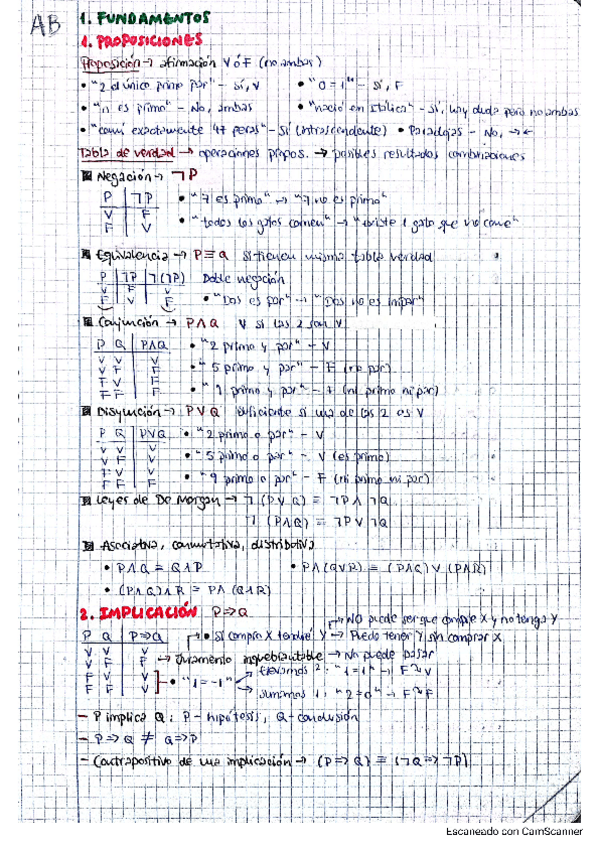 AB
1. FUNDAMENTOS
1. PROPOSICIONES
Proposición → afirmación V ó F (no ambas)
• "2 el único primo par" - Sí, V • "0 = 1" - Sí, F
• "n es primo" - No, ambas • "nació en Itálica" - Sí, hay duda pero no ambas
• "comí exactamente 47 peras" - Sí (intrascendente) • Paradojas - No, →←
Tabla de verdad → operaciones propos. → posibles resultados combinaciones
Negación → ¬P
P ¬P • "7 es primo" → "7 no es primo"
V F • "todos los gatos comen" → "existe 1 gato que no come"
F V
Equivalencia → P ≡ Q Si tienen misma tabla verdad
P ¬P ¬(¬P) Doble negación
V F V
F V F • "Dos es par" → "Dos no es impar"
Conjunción → P∧Q V si las 2 son V
P Q P∧Q • "2 primo y par" - V
V V V • "5 primo y par" - F (no par)
V F F
F V F • "9 primo y par" - F (ni primo ni par)
F F F
Disyunción → P∨Q Suficiente si una de las 2 es V
P Q P∨Q • "2 primo o par" - V
V V V • "5 primo o par" - V (es primo)
V F V
F V V • "9 primo o par" - F (ni primo ni par)
F F F
Leyes de De Morgan → ¬(P∨Q) ≡ ¬P∧¬Q
¬(P∧Q) ≡ ¬P∨¬Q
Asociativa, conmutativa, distributiva
• P∧Q = Q∧P • P∧(Q∨R) = (P∧Q)∨(P∧R)
• (P∧Q)∧R = P∧(Q∧R)
2. IMPLICACIÓN P⇒Q
→ No puede ser que compre X y no tenga Y
P Q P⇒Q • Si compro X tendré Y → Puedo tener Y sin comprar X
V V V
V F F → Juramento inquebrantable → No puede pasar
F V V • "1=-1" → Elevamos 2: "1=1" → F↷V
F F V → Sumamos 1: "2=0" → F↷F
- P implica Q: P - hipótesis, Q - conclusión
- P⇒Q ≠ Q⇒P
- Contrapositivo de una implicación → (P⇒Q) ≡ (¬Q⇒¬P)
Escaneado con CamScanner